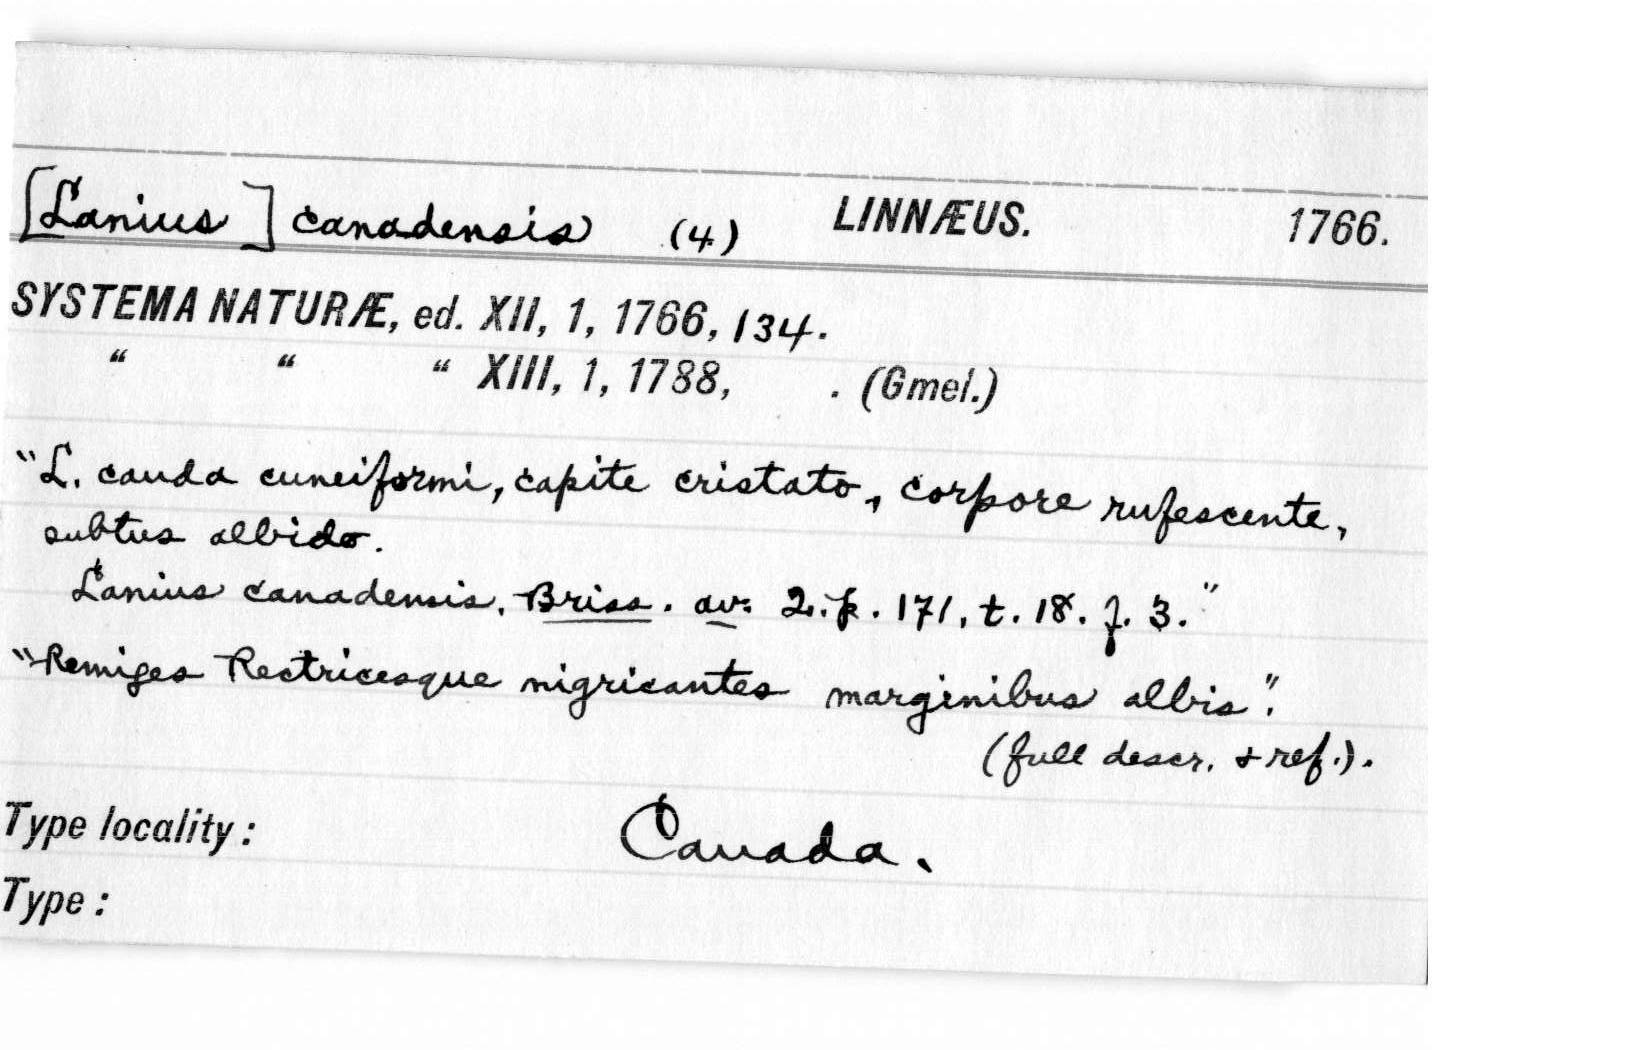 [Lanius] canadensis (4) LINNÆUS. 1766.
SYSTEMA NATURÆ, ed. XII, 1, 1766, 134.
“ “ “ XIII, 1, 1788, . (Gmel.)
"L. cauda cuneiformi, capite cristato, corpore rufescente,
subtus albido.
Lanius canadensis. Briss. av. 2. p. 171, t. 18. f. 3."
"Remiges Rectricesque nigricantes marginibus albis".
(full descr. & ref.).
Type locality: Canada.
Type: